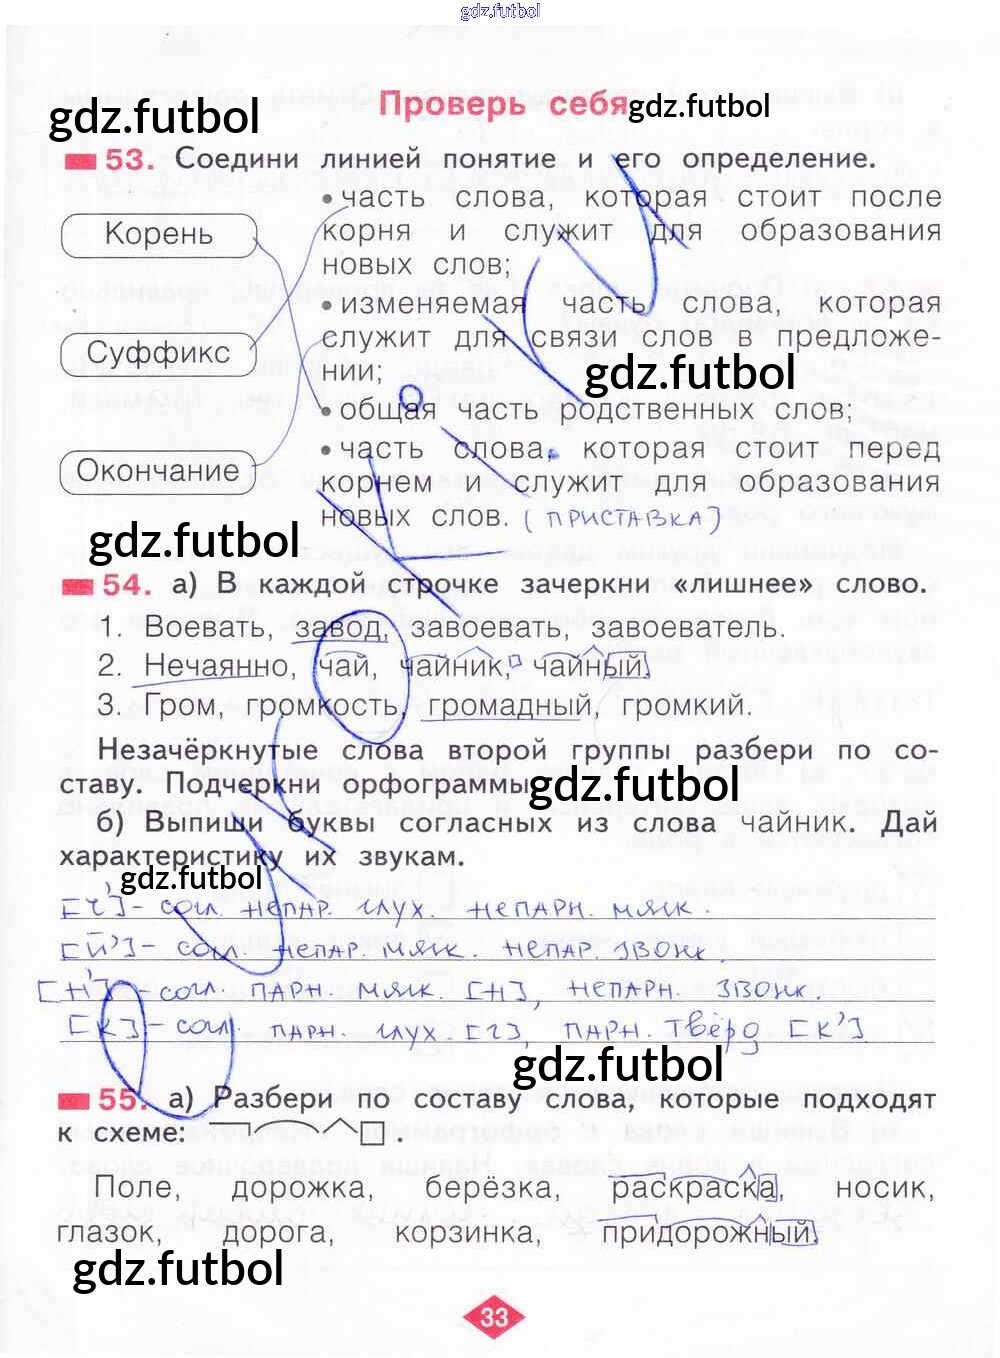 gdz.futbol
Проверь себя gdz.futbol
gdz.futbol
53. Соедини линией понятие и его определение.
Корень
Суффикс
Окончание
• часть слова, которая стоит после
корня и служит для образования
новых слов;
• изменяемая часть слова, которая
служит для связи слов в предложе-
нии;
gdz.futbol
• общая часть родственных слов;
• часть слова, которая стоит перед
корнем и служит для образования
новых слов. (ПРИСТАВКА)
gdz.futbol
54. а) В каждой строчке зачеркни «лишнее» слово.
1. Воевать, завод, завоевать, завоеватель.
2. Нечаянно, чай, чайник, чайный.
3. Гром, громкость, громадный, громкий.
Незачёркнутые слова второй группы разбери по со-
ставу. Подчеркни орфограммы.
gdz.futbol
б) Выпиши буквы согласных из слова чайник. Дай
характеристику их звукам.
gdz.futbol
[Ч'] - согл. НЕПАР. ГЛУХ. НЕПАРН. МЯГК.
[Й'] - согл. НЕПАР. МЯГК. НЕПАР. ЗВОНК.
[Н'] - согл. ПАРН. МЯГК. [Н], НЕПАРН. ЗВОНК.
[К] - согл. ПАРН. ГЛУХ. [Г], ПАРН. ТВЁРД [К']
gdz.futbol
55. а) Разбери по составу слова, которые подходят
к схеме: .
Поле, дорожка, берёзка, раскраска, носик,
глазок, дорога, корзинка, придорожный.
gdz.futbol
33